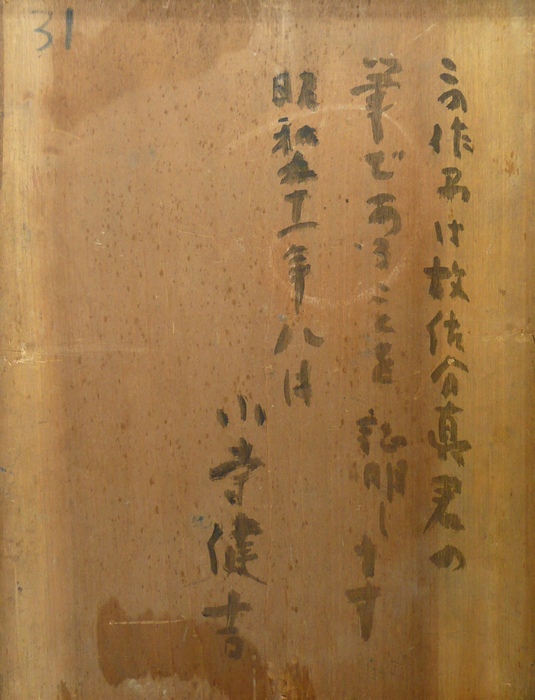 この作品は故佐分真君の
筆であることを証明します
昭和五十一年八月
小寺健吉
31